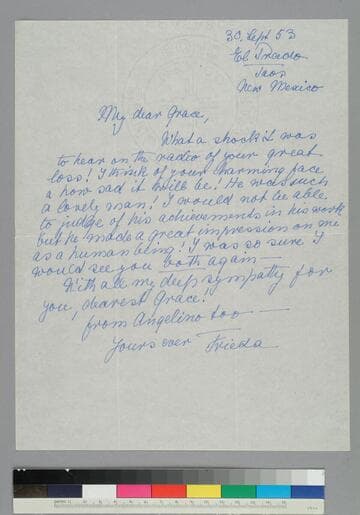 30. Sept 53
El Prado
Taos
New Mexico
My dear Grace,
What a shock it was
to hear on the radio of your great
loss! I think of your charming face
& how sad it will be! He was such
a lovely man! I would not be able
to judge of his achievements in his work
but he made a great impression on me
as a human being! I was so sure I
would see you both again —
With all my deep sympathy for
you, dearest Grace!
from Angelino too —
Yours ever Frieda